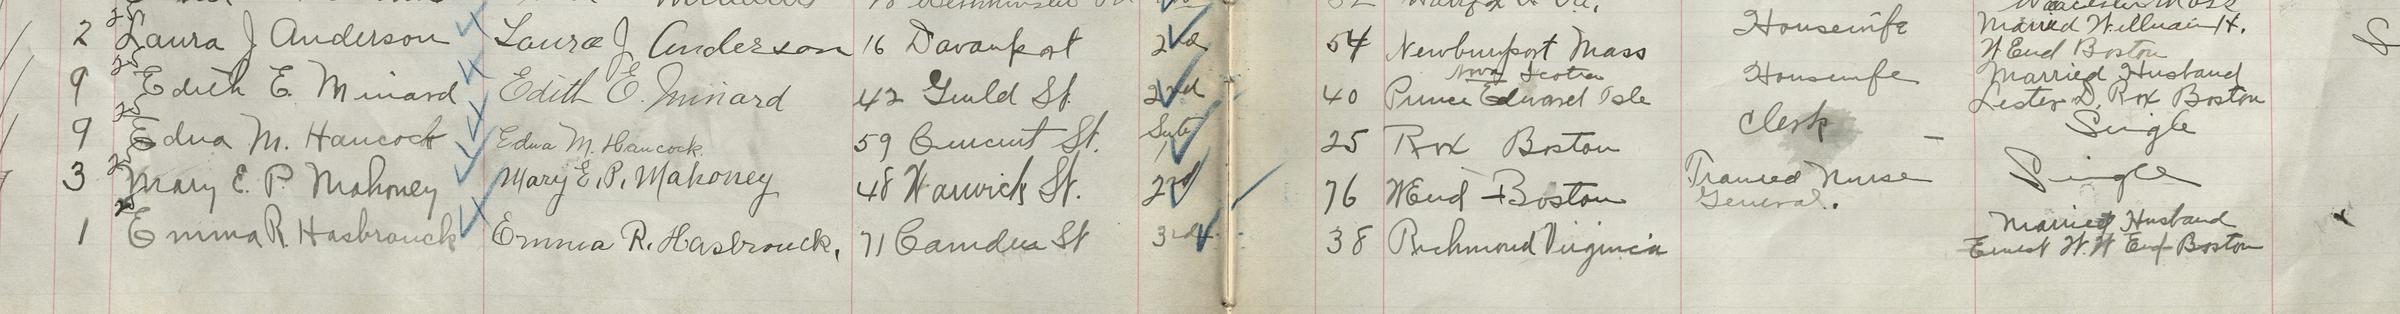 2 Laura J Anderson Laura J Anderson 16 Davenport 2nd 54 Newburyport Mass Housewife Married William H.
W End Boston
9 Edith E. Minard Edith E. Minard 42 Guild St. 2nd 40 Nova Scotia Housewife Married Husband
Prince Edward Isle Lester D. Rox Boston
9 Edna M. Hancock Edna M. Hancock. 59 St. 25 Rox Boston Clerk - Single
3 Mary E. P. Mahoney Mary E. P. Mahoney 48 Warwick St. 2nd 76 W End Boston Trained Nurse Single
General.
1 Emma R. Hasbrouck Emma R. Hasbrouck, 71 Camden St 3rd 38 Richmond Virginia Married Husband
Ernest H. W End Boston